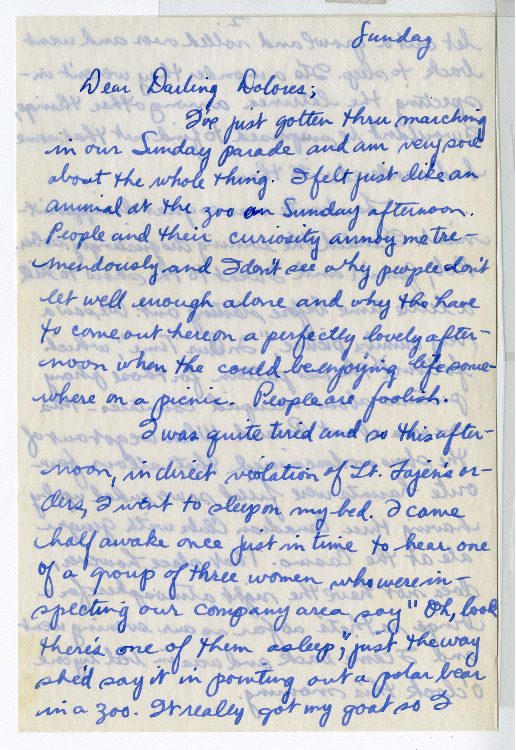 Sunday
Dear Darling Dolores;
I've just gotten thru marching
in our Sunday parade and am very sore
about the whole thing. I felt just like an
animal at the zoo on Sunday afternoon.
People and their curiosity annoy me tre-
mendously and I don't see why people don't
let well enough alone and why the have
to come out here on a perfectly lovely after-
noon when the could be enjoying life some-
where on a picnic. People are foolish.
I was quite tired and so this after-
noon, in direct violation of Lt. Fajen's or-
ders, I went to sleep on my bed. I came
half awake once just in time to hear one
of a group of three women who were in-
specting our company area say "Oh, look
there's one of them asleep," just the way
she'd say it in pointing out a polar bear
in a zoo. It really got my goat so I